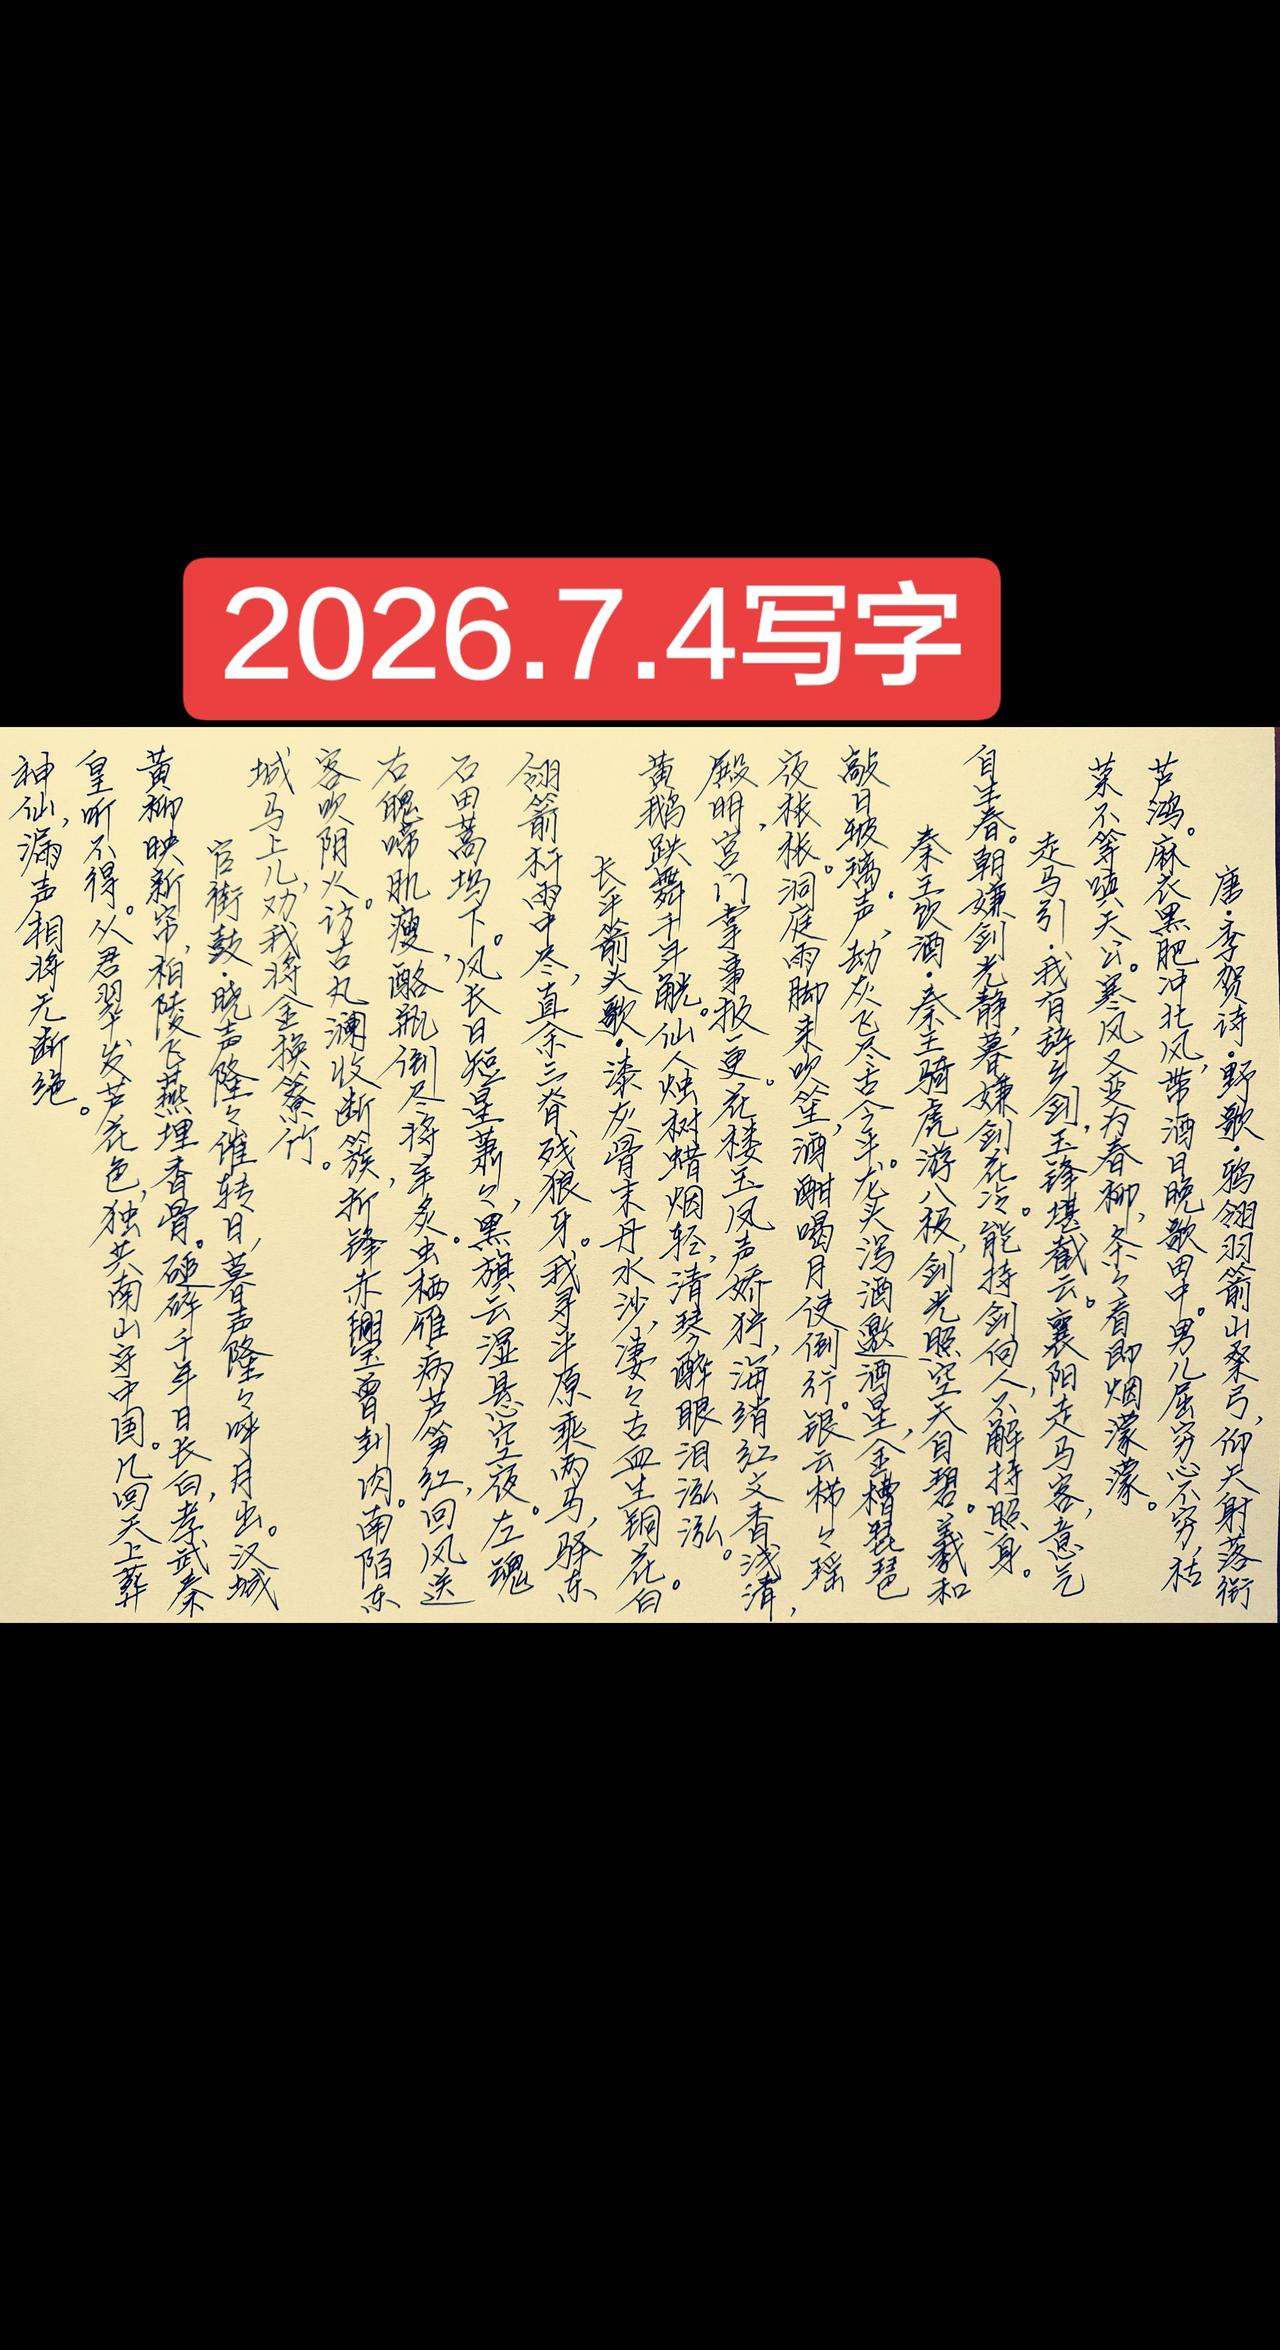 2026.7.4写字
唐·李贺诗·野歌·鸦翎羽箭山桑弓，仰天射落衔
芦鸿。麻衣黑肥冲北风，带酒日晚歌田中。男儿屈穷心不穷，枯
荣不等嗔天公。寒风又变为春柳，条々看即烟濛濛。
走马引·我有辞乡剑，玉锋堪截云。襄阳走马客，意气
自生春。朝嫌剑光静，暮嫌剑花冷。能持剑向人，不解持照身。
秦王饮酒·秦王骑虎游八极，剑光照空天自碧。羲和
敲日玻璃声，劫灰飞尽古今平。龙头泻酒邀酒星，金槽琵琶
夜枨枨。洞庭雨脚来吹笙，酒酣喝月使倒行。银云栉々瑶
殿明，宫门掌事报一更。花楼玉凤声娇狞，海绡红文香浅清，
黄鹅跌舞千年觥。仙人烛树蜡烟轻，清琴醉眼泪泓泓。
长平箭头歌·漆灰骨末丹水沙，凄々古血生铜花白。
翎箭杆雨中尽，直余三脊残狼牙。我寻平原乘两马，驿东
石田蒿坞下。风长日短星萧々，黑旗云湿悬空夜。左魂
右魄啼肌瘦，酪瓶倒尽将羊炙。虫栖雁病芦笋红，回风送
客吹阴火。访古丸澜收断簇，折锋赤璺曾刲肉。南陌东
城马上儿，劝我将金换簝竹。
官街鼓·晓声隆々催转日，暮声隆々呼月出。汉城
黄柳映新帘，柏陵飞燕埋香骨。磓碎千年日长白，孝武秦
皇听不得。从君翠发芦花色，独共南山守中国。几回天上葬
神仙，漏声相将无断绝。